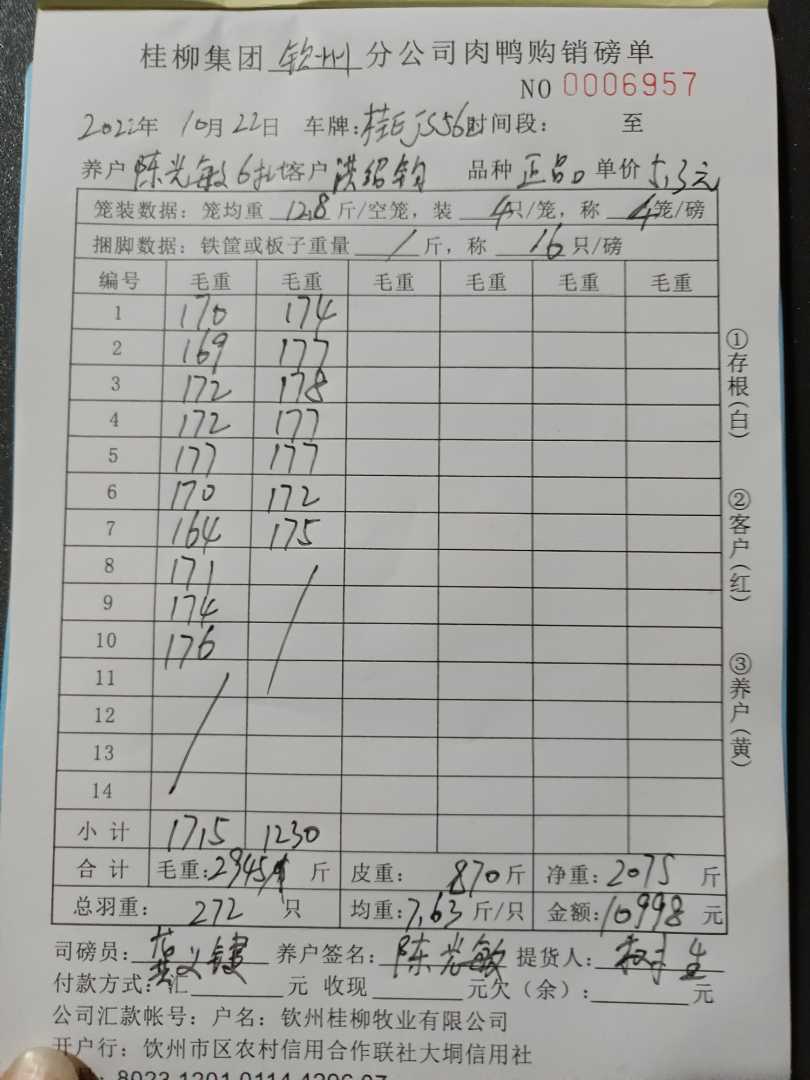 桂柳集团 钦州 分公司肉鸭购销磅单
NO 0006957
2022年 10月22日 车牌:桂EJS562 时间段: 至
养户 陈光敏6批 客户 洪绍钧 品种 正品 单价 5.3元
笼装数据: 笼均重 12.8 斤/空笼, 装 4只/笼, 称 4笼/磅
捆脚数据: 铁筐或板子重量 / 斤, 称 16 只/磅
编号 毛重 毛重 毛重 毛重 毛重 毛重
1 170 174
2 169 177
3 172 178
4 172 177
5 177 177
6 170 172
7 164 175
8 171
9 174
10 176
11
12
13
14
小计 1715 1230
合计 毛重:2945 斤 皮重: 870斤 净重:2075 斤
总羽重: 272 只 均重:7.63 斤/只 金额:10998 元
司磅员: 养户签名: 陈光敏 提货人:
付款方式: 汇 元 收现 元欠(余): 元
公司汇款帐号: 户名: 钦州桂柳牧业有限公司
开户行: 饮州市区农村信用合作联社大垌信用社
8023 1201 0114 4206 07
①存根(白)
②客户(红)
③养户(黄)